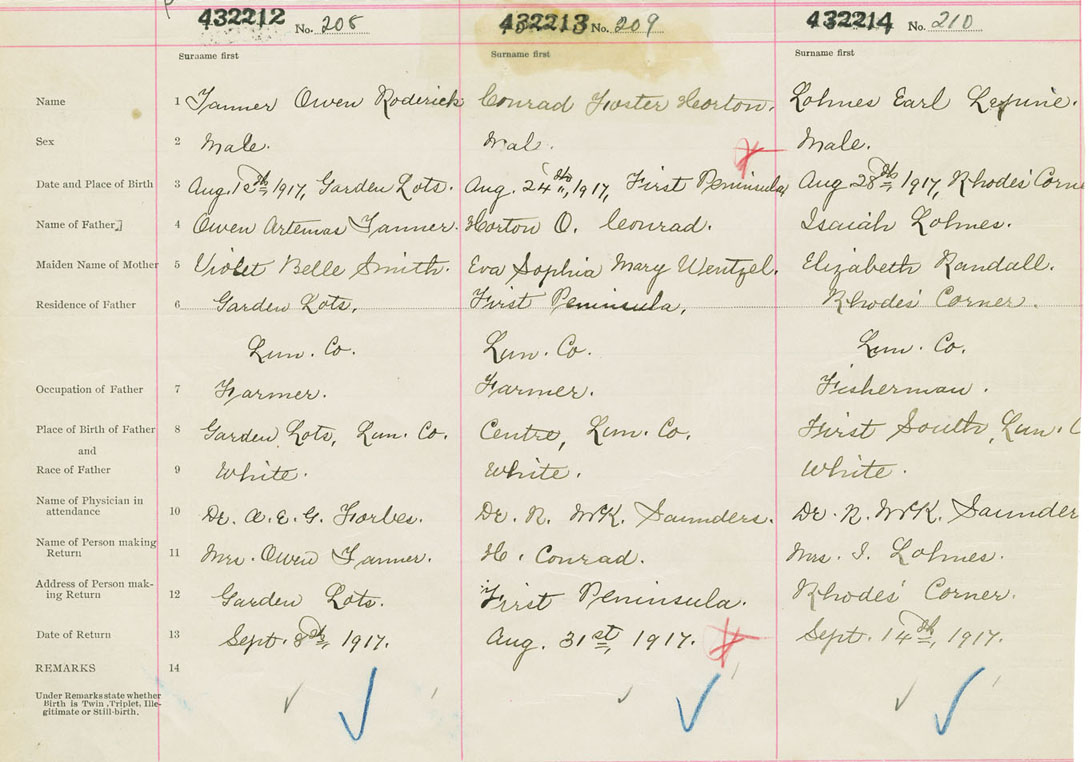 432212 No. 208 432213 No. 209 432214 No. 210
Surname first Surname first Surname first
Name 1 Tanner Owen Roderick Conrad Foster Horton. Lohnes Earl
Sex 2 Male. Male. Male.
Date and Place of Birth 3 Aug. 1917, Garden Lots. Aug. 24th, 1917, First Peninsula Aug 28th, 1917, Rhodes' Corne
Name of Father 4 Owen Artemas Tanner. Horton O. Conrad. Isaiah Lohnes.
Maiden Name of Mother 5 Violet Belle Smith. Eva Sophia Mary Wentzel. Elizabeth Randall.
Residence of Father 6 Garden Lots, First Peninsula, Rhodes' Corner.
Lun. Co. Lun. Co. Lun. Co.
Occupation of Father 7 Farmer. Farmer. Fisherman.
Place of Birth of Father 8 Garden Lots, Lun. Co. Centre, Lun. Co. First South, Lun. C
and
Race of Father 9 White. White. White.
Name of Physician in
attendance 10 Dr. A. E. G. Forbes. Dr. R. McK. Saunders. Dr. R. McK. Saunder
Name of Person making
Return 11 Mrs. Owen Tanner. H. Conrad. Mrs. I. Lohnes.
Address of Person mak-
ing Return 12 Garden Lots. First Peninsula. Rhodes' Corner.
Date of Return 13 Sept. 8th, 1917. Aug. 31st, 1917. Sept. 14th, 1917.
REMARKS 14
Under Remarks state whether
Birth is Twin, Triplet, Ille-
gitimate or Still-birth.